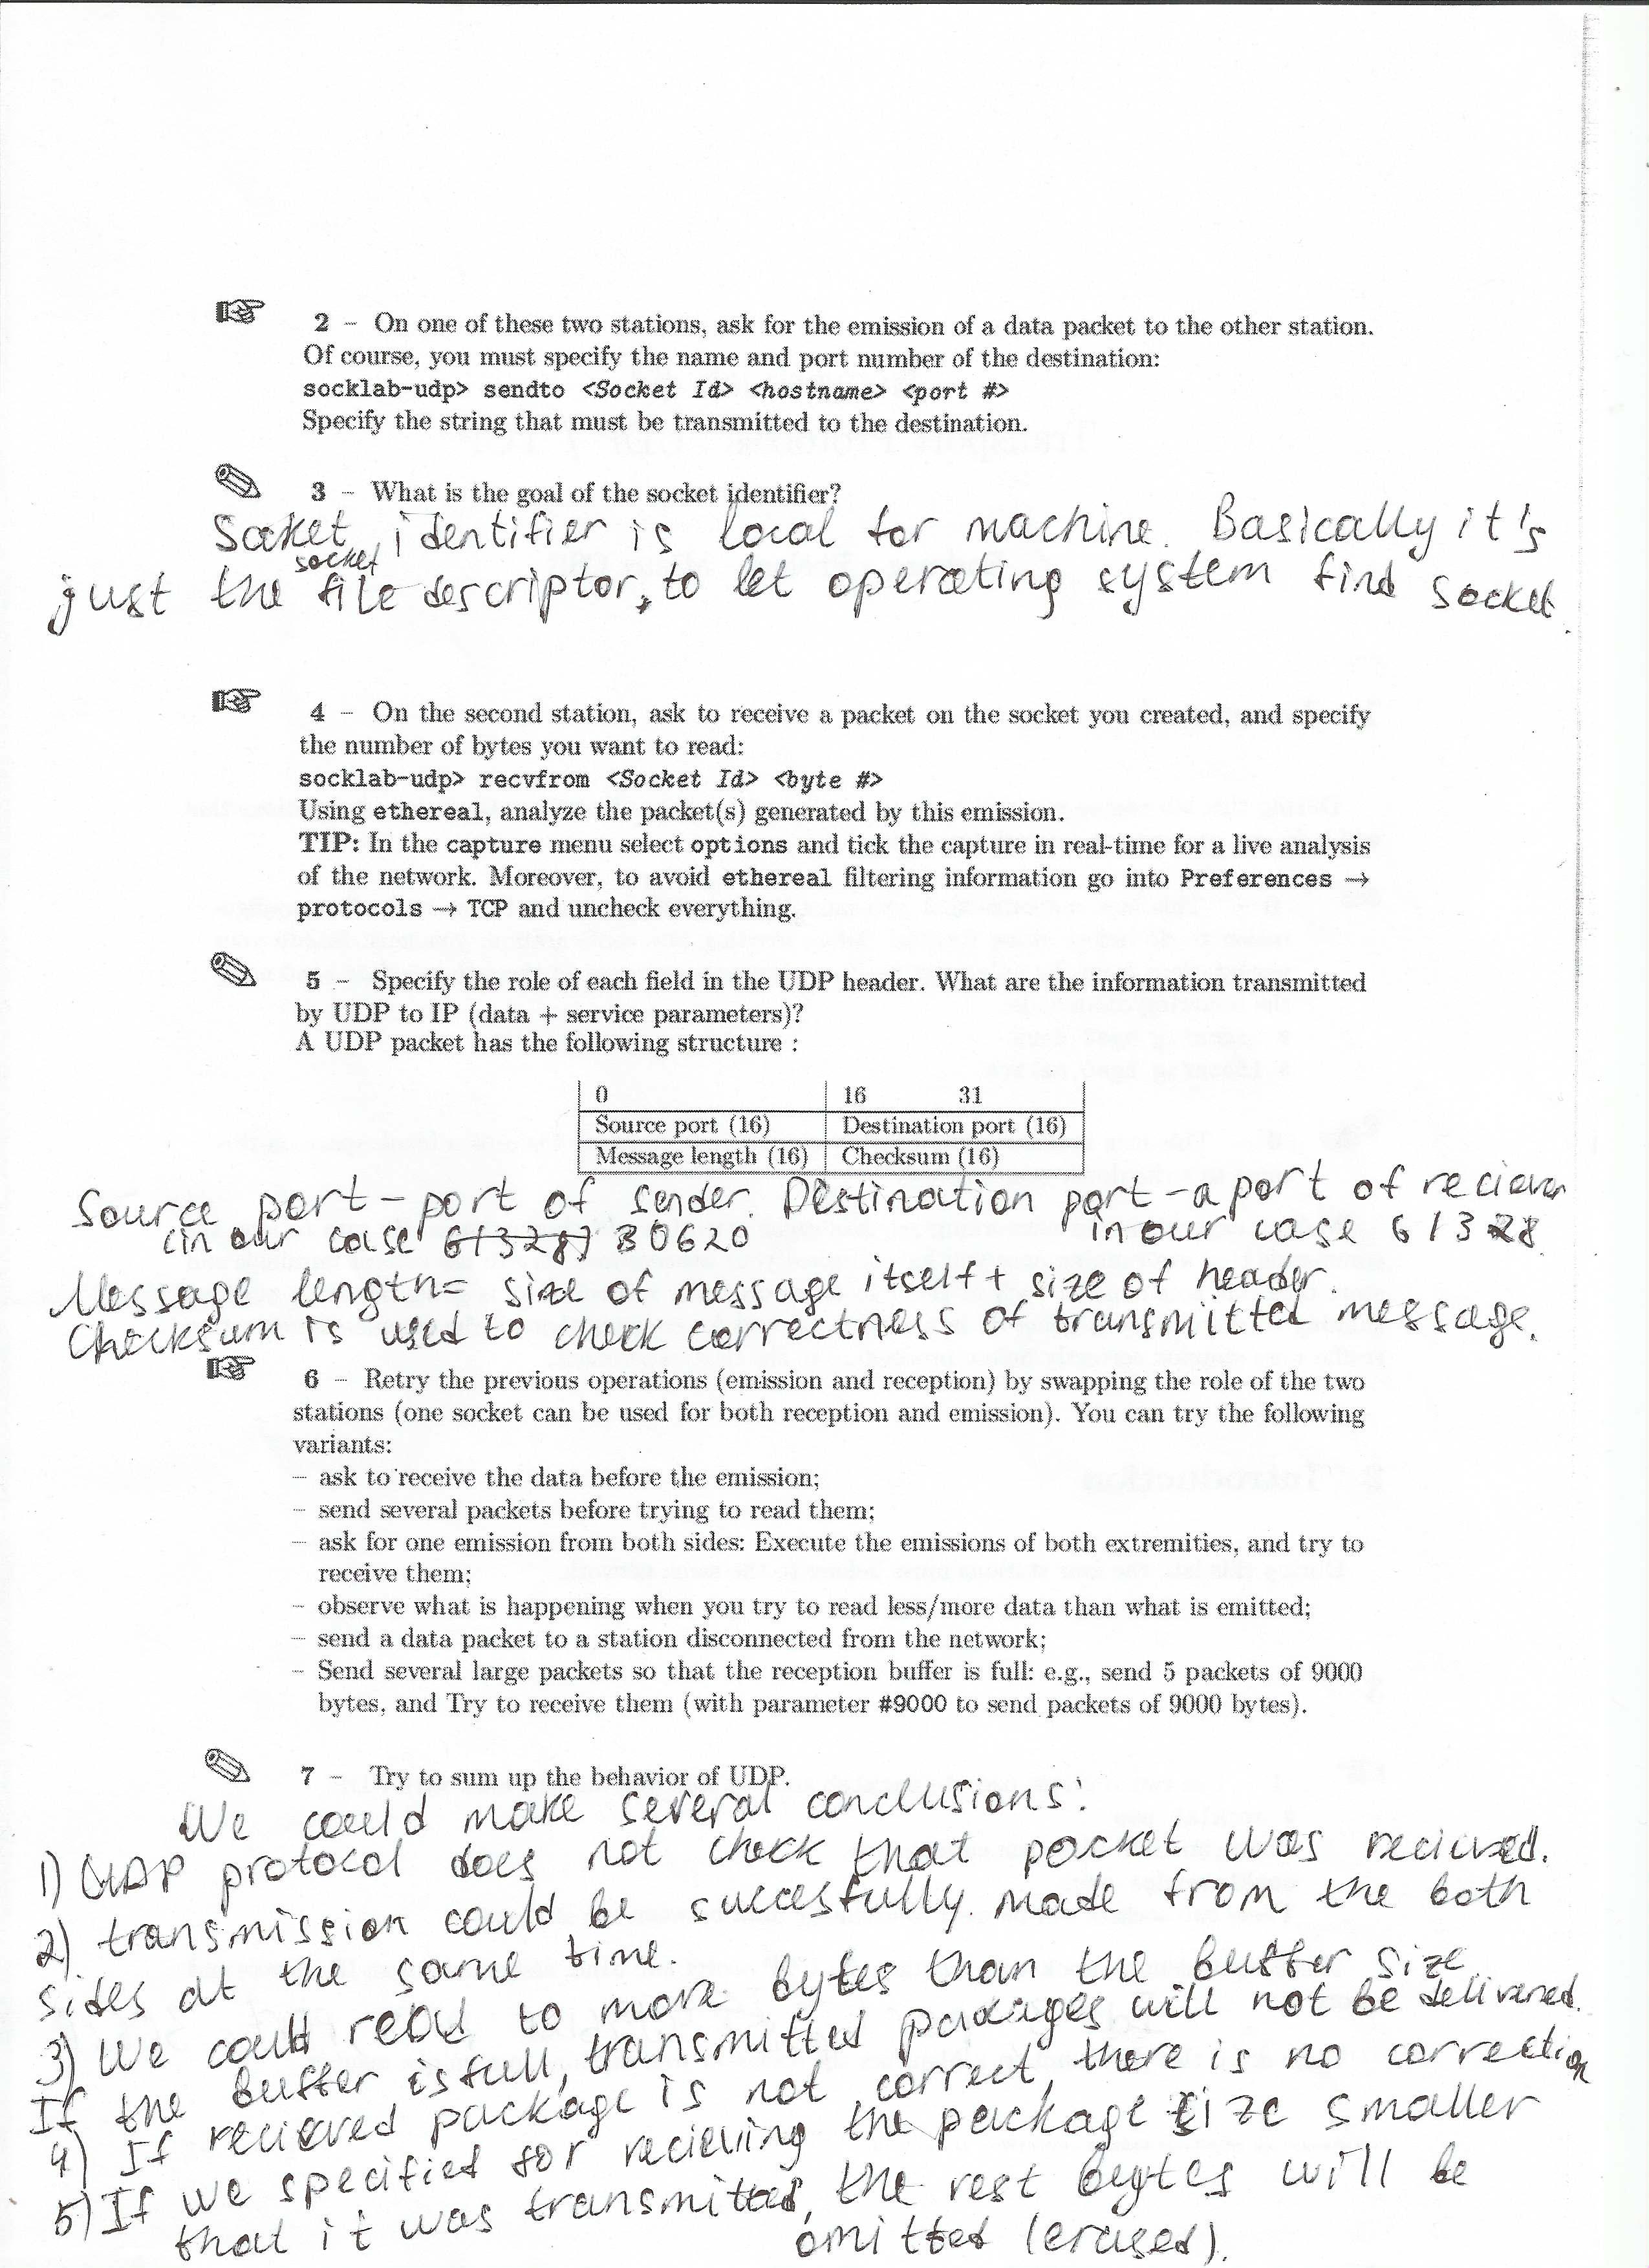 2 – On one of these two stations, ask for the emission of a data packet to the other station.
Of course, you must specify the name and port number of the destination:
socklab-udp> sendto <Socket Id> <hostname> <port #>
Specify the string that must be transmitted to the destination.
3 – What is the goal of the socket identifier?
Socket identifier is local for machine. Basically it's
just the socket file descriptor, to let operating system find socket.
4 – On the second station, ask to receive a packet on the socket you created, and specify
the number of bytes you want to read:
socklab-udp> recvfrom <Socket Id> <byte #>
Using ethereal, analyze the packet(s) generated by this emission.
TIP: In the capture menu select options and tick the capture in real-time for a live analysis
of the network. Moreover, to avoid ethereal filtering information go into Preferences →
protocols → TCP and uncheck everything.
5 – Specify the role of each field in the UDP header. What are the information transmitted
by UDP to IP (data + service parameters)?
A UDP packet has the following structure :
0 16 31
Source port (16) Destination port (16)
Message length (16) Checksum (16)
Source port – port of sender. Destination port – a port of reciever
(in our case 61328) 30620 in our case 61328
Message length = size of message itself + size of header.
Checksum is used to check correctness of transmitted message.
6 – Retry the previous operations (emission and reception) by swapping the role of the two
stations (one socket can be used for both reception and emission). You can try the following
variants:
– ask to receive the data before the emission;
– send several packets before trying to read them;
– ask for one emission from both sides: Execute the emissions of both extremities, and try to
receive them;
– observe what is happening when you try to read less/more data than what is emitted;
– send a data packet to a station disconnected from the network;
– Send several large packets so that the reception buffer is full: e.g., send 5 packets of 9000
bytes, and Try to receive them (with parameter #9000 to send packets of 9000 bytes).
7 – Try to sum up the behavior of UDP.
We could make several conclusions:
1) UDP protocol does not check that packet was recieved.
2) transmission could be succesfully made from the both
sides at the same time.
3) We could read to more bytes than the buffer size.
If the buffer is full, transmitted packages will not be delivered.
4) If recieved package is not correct, there is no correction
5) If we specified for recieving the package size smaller
that it was transmitted, the rest bytes will be
omitted (erased).